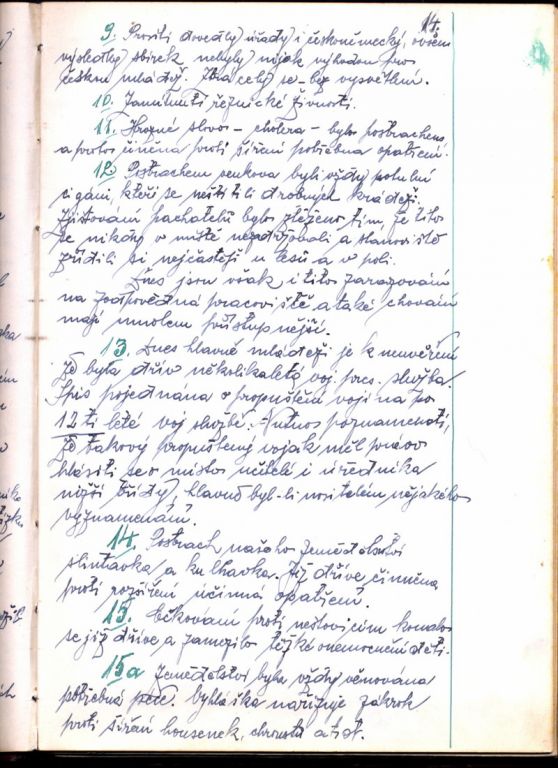 14.
9. Prosili dovedly úřady i českoněmecký, ovšem
výsledky sbírek nebyly nijak výhodou pro
českou mládež. Zbá celý se bez vysvětlení.
10. Zamítnutí řeznické živnosti.
11. Hrozné slovo – cholera – bylo postrachem
a proto činěna proti šíření potřebná opatření.
12. Postrachem venkova byli vždy potulní
cigáni, kteří se neštítili drobných krádeží.
Zjišťování pachatelů bylo ztíženo tím, že tito
se nikdy v místě nezdržovali a stanoviště
zřídili si nejčastěji u lesů a v poli.
Dnes jsou však i tito zařazováni
na zodpovědná pracoviště a také chování
mají mnohem přístupnější.
13. Dnes hlavně mládeži je k neuvěření
že byla dřív několikaletá voj. pres. služba.
Spis pojednána o propuštění vojína po
12ti leté voj službě. Nutno poznamenati,
že takový propuštěný voják měl právo
hlásiti se o místo učitele i úředníka
nižší třídy, hlavně byl-li nositelem nějakého
vyznamenání.
14. Postrach našeho zemědělství
slintavka a kulhavka. Již dříve činěna
proti rozšíření účinná opatření.
15. Očkování proti neštovicím konalo
se již dříve a zamezilo těžké onemocnění dětí.
15a Zemědělství byla vždy věnována
potřebná péče. Vyhláška nařizuje zákrok
proti šíření housenek, chroustů a t.d.